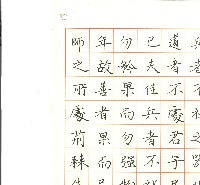 師之所處荊棘
年故善者果而
勿矜果而勿強
已夫佳兵者不
道者不處君子